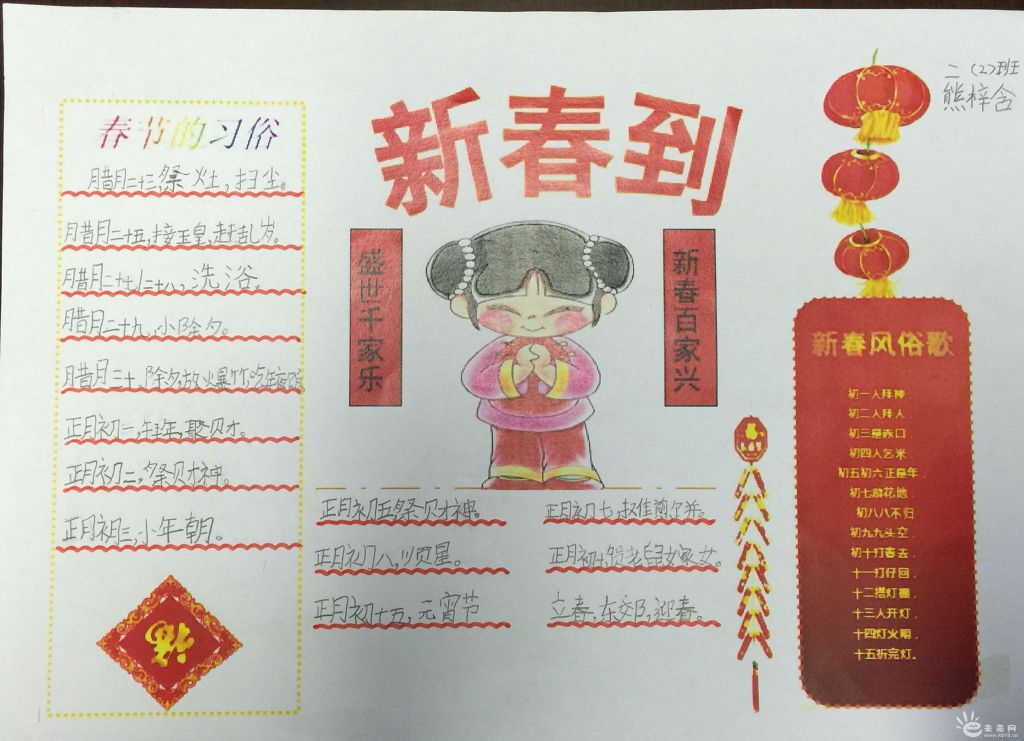 新春到
二（2）班
熊梓含
春节的习俗
腊月二十三祭灶，扫尘。
腊月二十五，接玉皇，赶乱岁。
腊月二十七/二十八，洗浴。
腊月二十九，小除夕。
腊月三十，除夕放火爆竹吃年夜饭
正月初一，拜年，聚财。
正月初二，祭财神。
正月初三，小年朝。
福
盛世千家乐
新春百家兴
正月初五，祭财神。
正月初八，顺星。
正月初十五，元宵节
正月初七，
立春，东郊，迎春。
新春风俗歌
初一人拜神，
初二人拜人，
初三是赤口，
初四人乞米，
初五初六正是年，
初七
初八八不归
初九九头空，
初十打春去，
十一打仔回，
十二搭灯棚，
十三人开灯，
十四灯火明，
十五拆完灯。
未来网
www.k618.cn